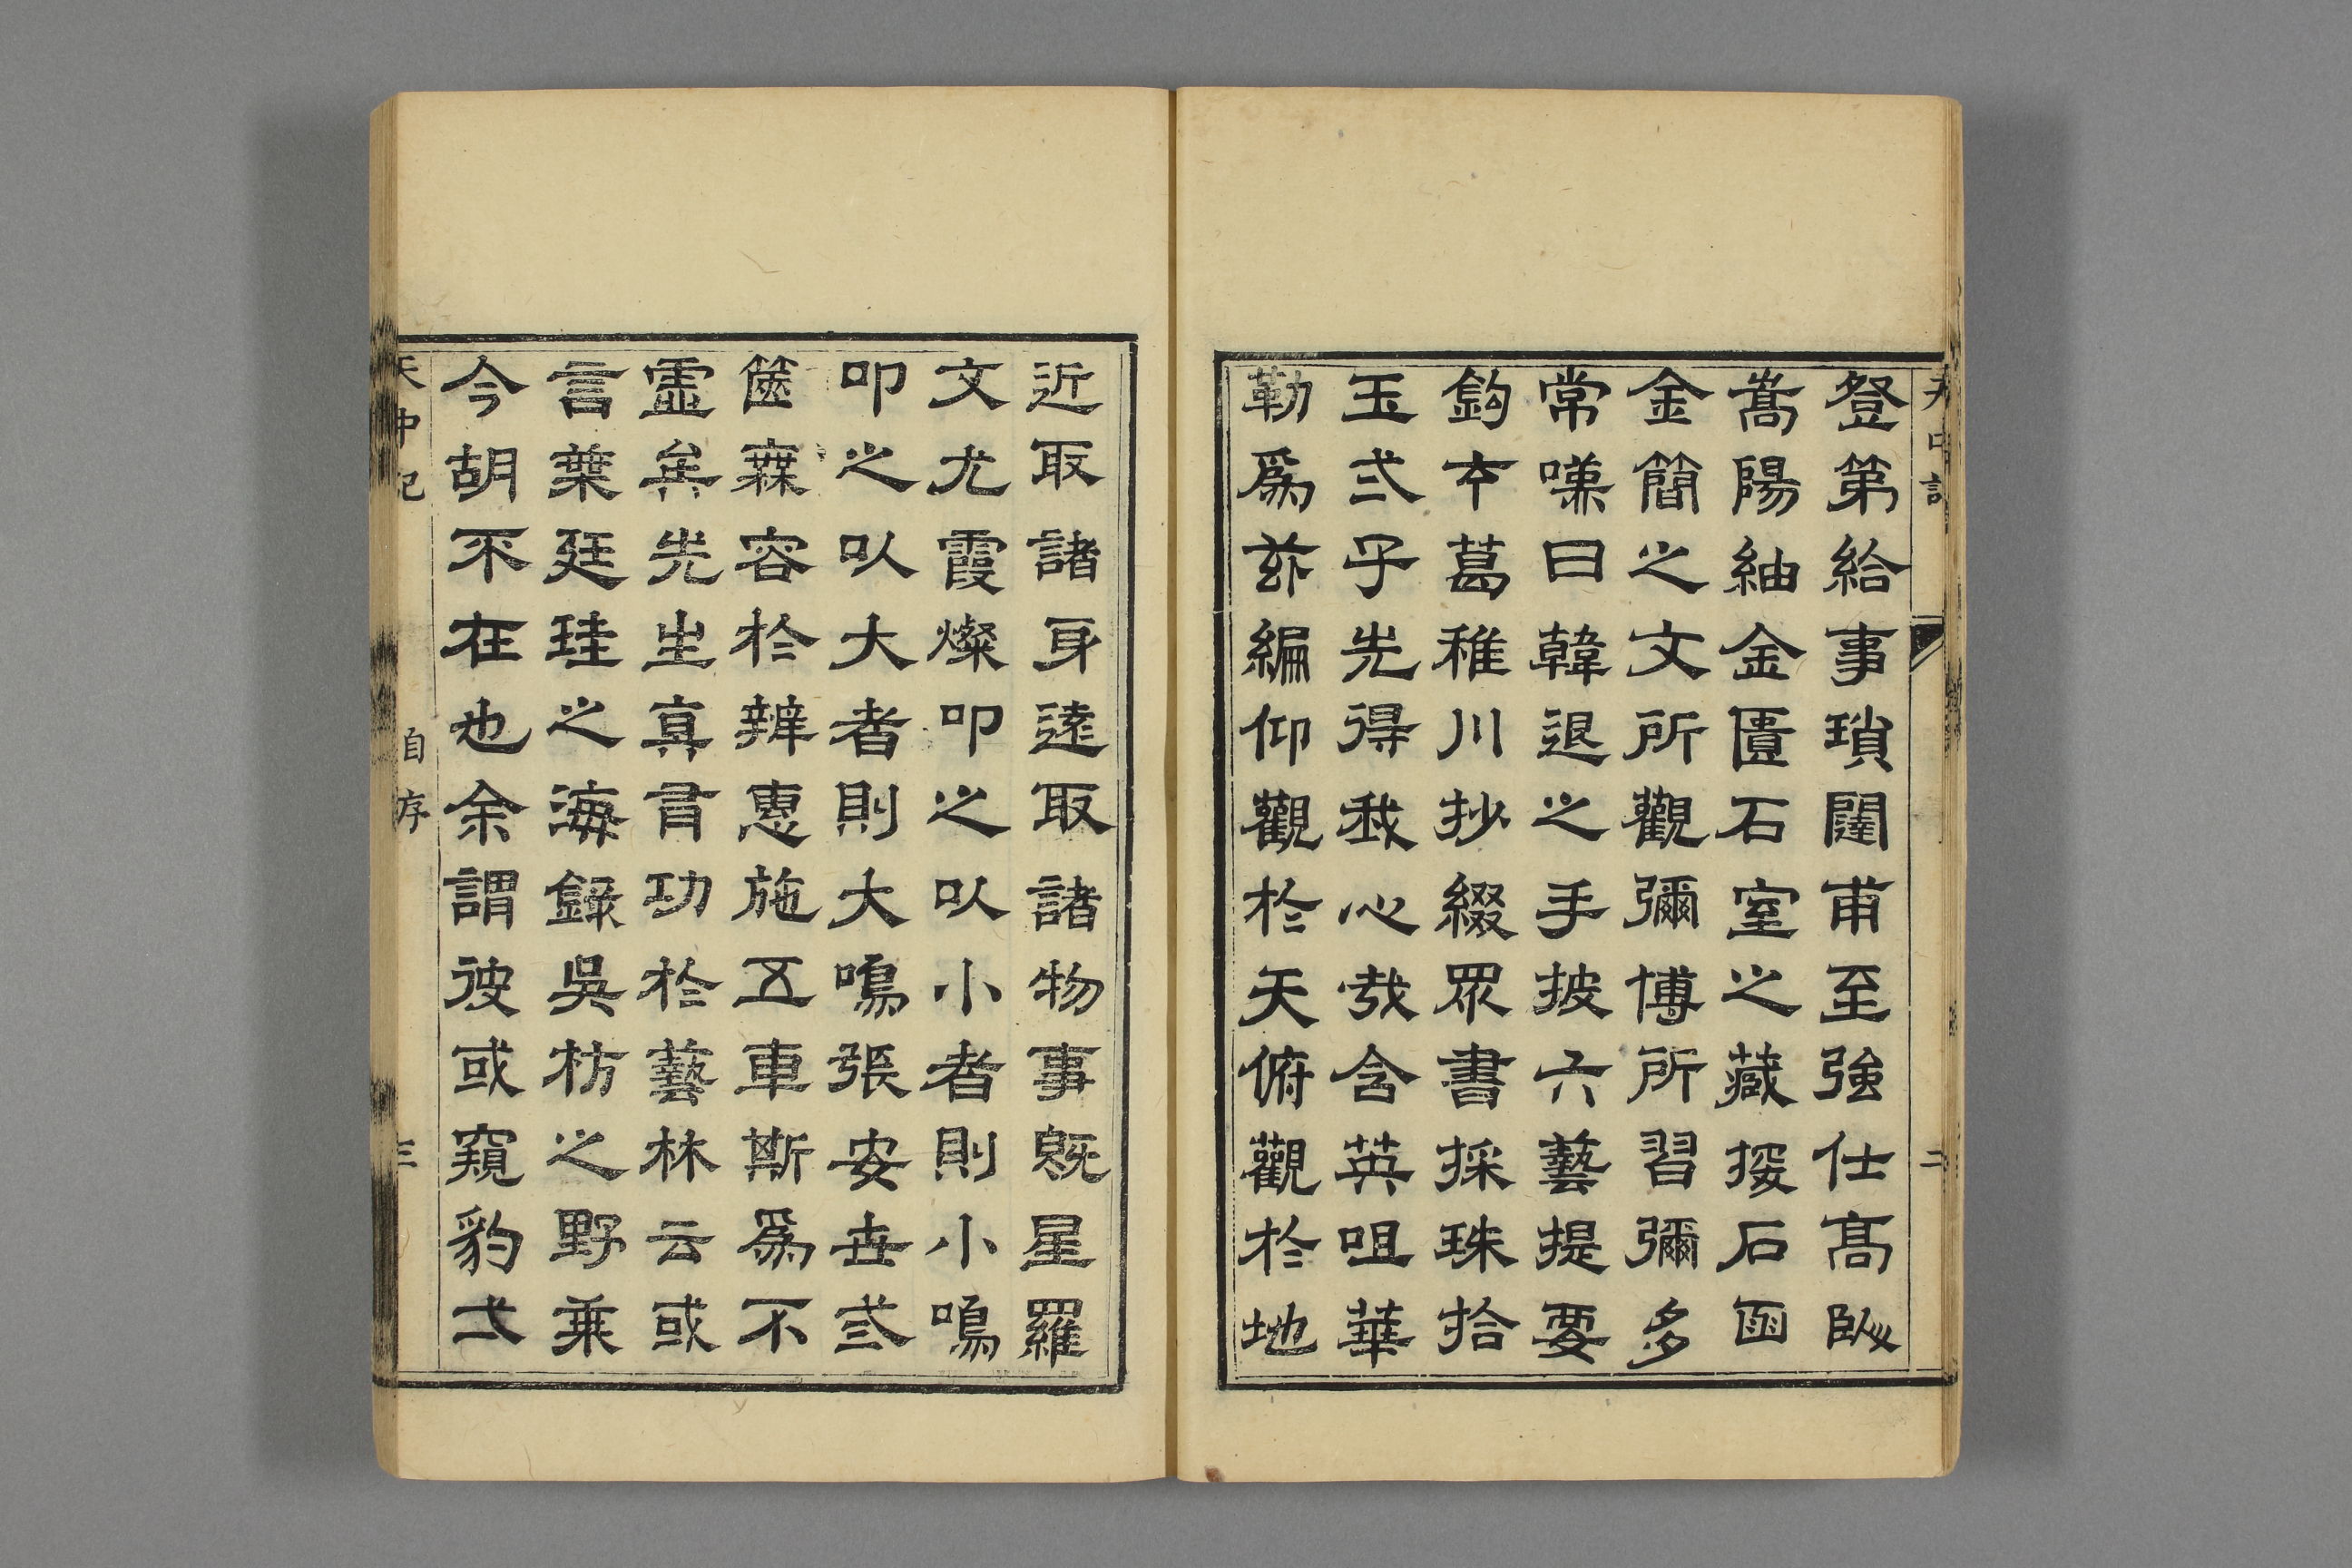 天中記
二
登第給事瑣闥甫至強仕髙臥
嵩陽紬金匱石室之藏按石函
金簡之文所觀彌博所習彌多
常嘆曰韓退之手披六藝提要
鈎夲葛稚川抄綴眾書採珠拾
玉弍子先得我心哉含英咀華
勒爲茲編仰觀於天俯觀於地
近取諸身遠取諸物事旣星羅
文尤霞燦叩之以小者則小鳴
叩之以大者則大鳴張安世弎
篋寡容於辨惠施五車斯爲不
虛矣先生真有功於藝林云或
言葉廷珪之海錄吳枋之野乗
今胡不在也余謂彼或窺豹弌
天中記
自序
三